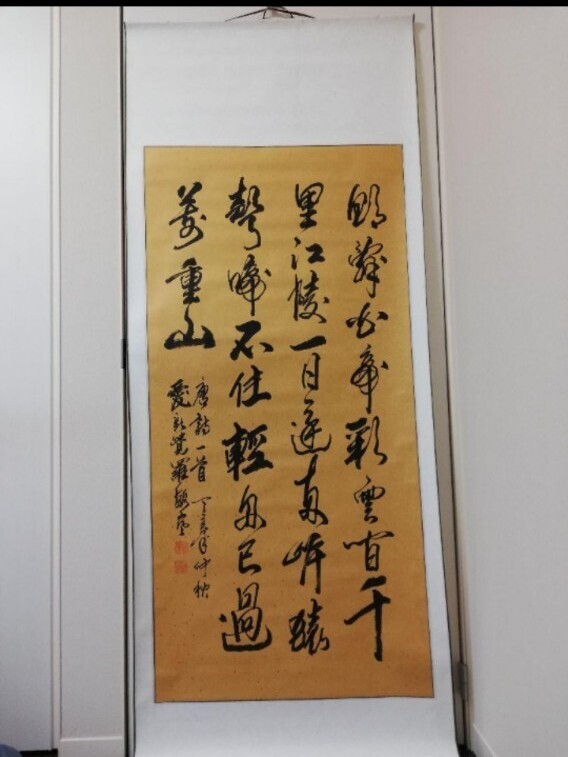 朝辭白帝彩雲間千
里江陵一日還兩岸猿
聲啼不住輕舟已過
萬重山
唐詩一首 丁亥年仲秋
愛新覺羅